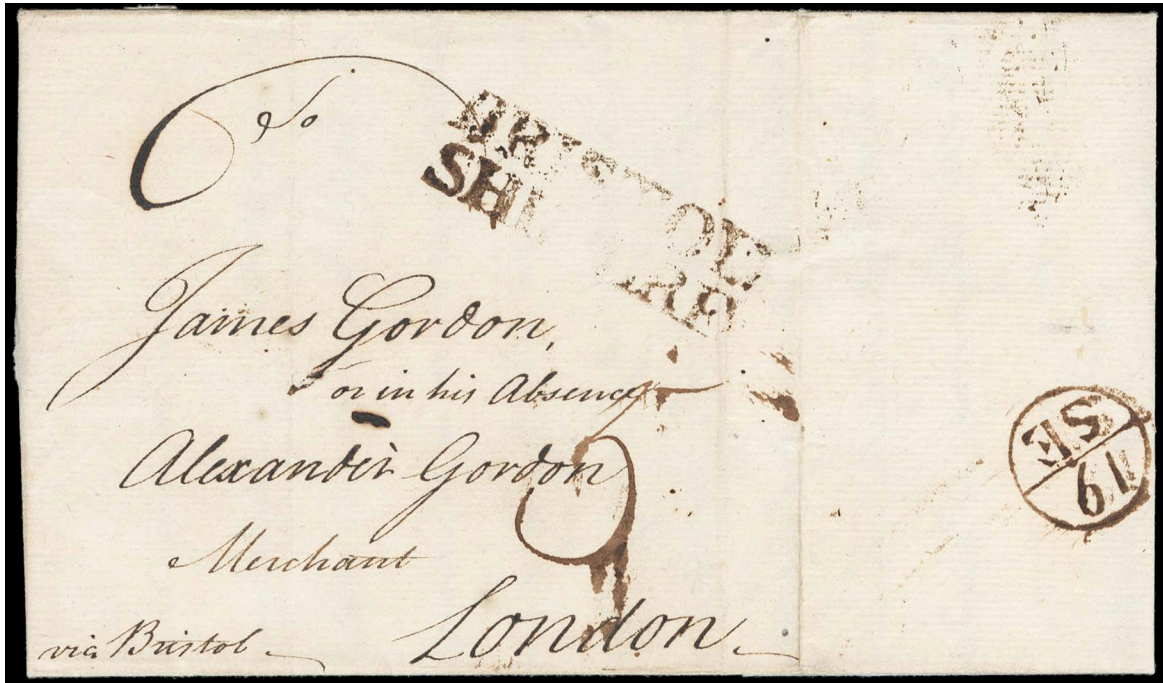 To
BRISTOL
SHI
James Gordon,
or in his Absence
Alexander Gordon
Merchant
London
via Bristol
SE
19